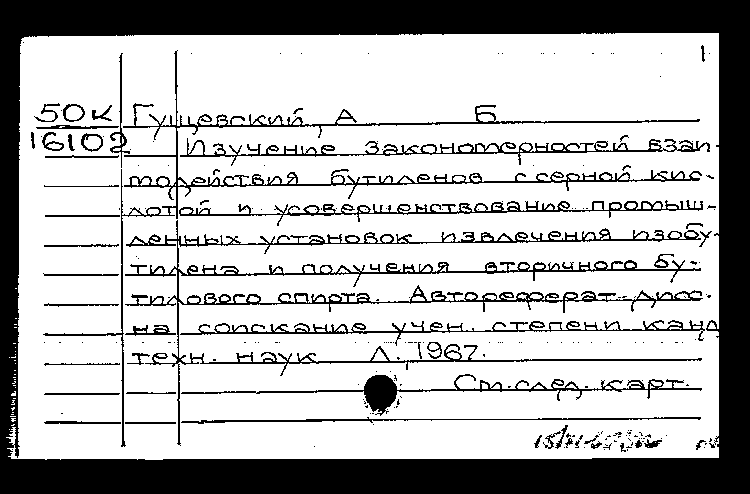 1
50к Гущевский, А Б
16102 Изучение закономерностей взаи-
модействия бутиленов с серной кис-
лотой и усовершенствование промыш-
ленных установок извлечения изобу-
тилена и получения вторичного бу-
тилового спирта. Автореферат дисс.
на соискание учен. степени канд
техн. наук Л., 1967.
См. след. карт.